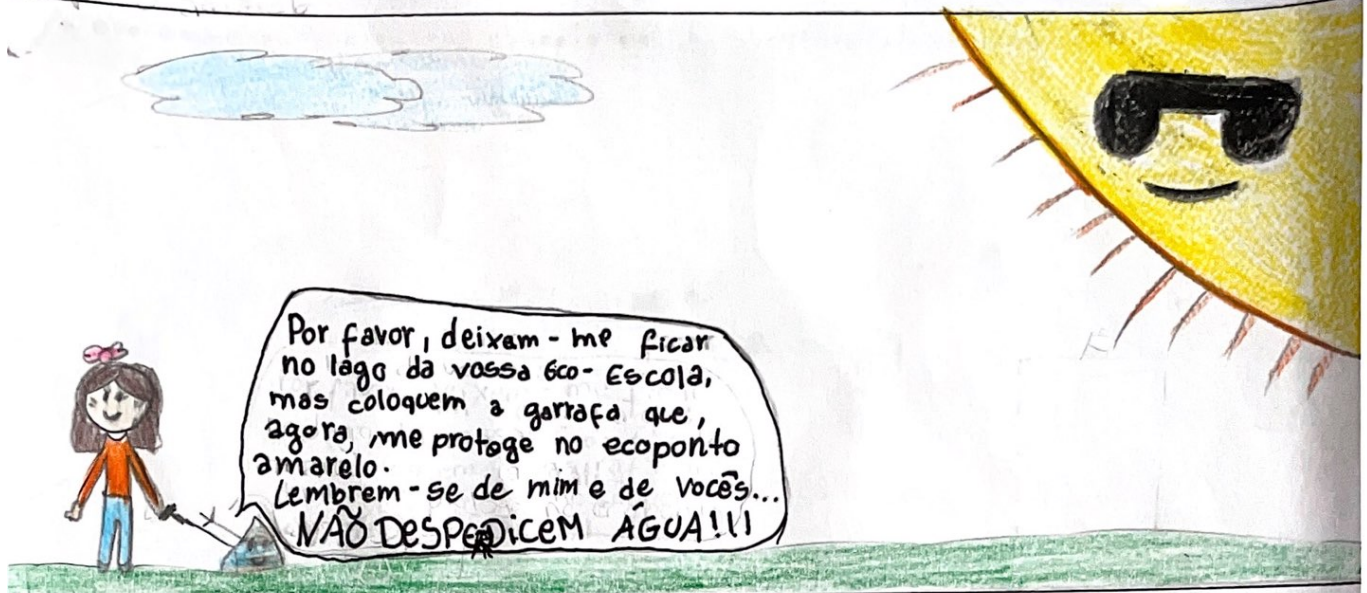 Por favor, deixam-me ficar
no lago da vossa Eco-Escola,
mas coloquem a garrafa que,
agora, me protoge no ecoponto
amarelo.
Lembrem-se de mim e de vocês...
NÃO DESPERDICEM ÁGUA!!!